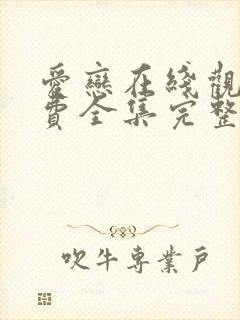 愛戀在綫觀
費全集完整
吹牛專業戶